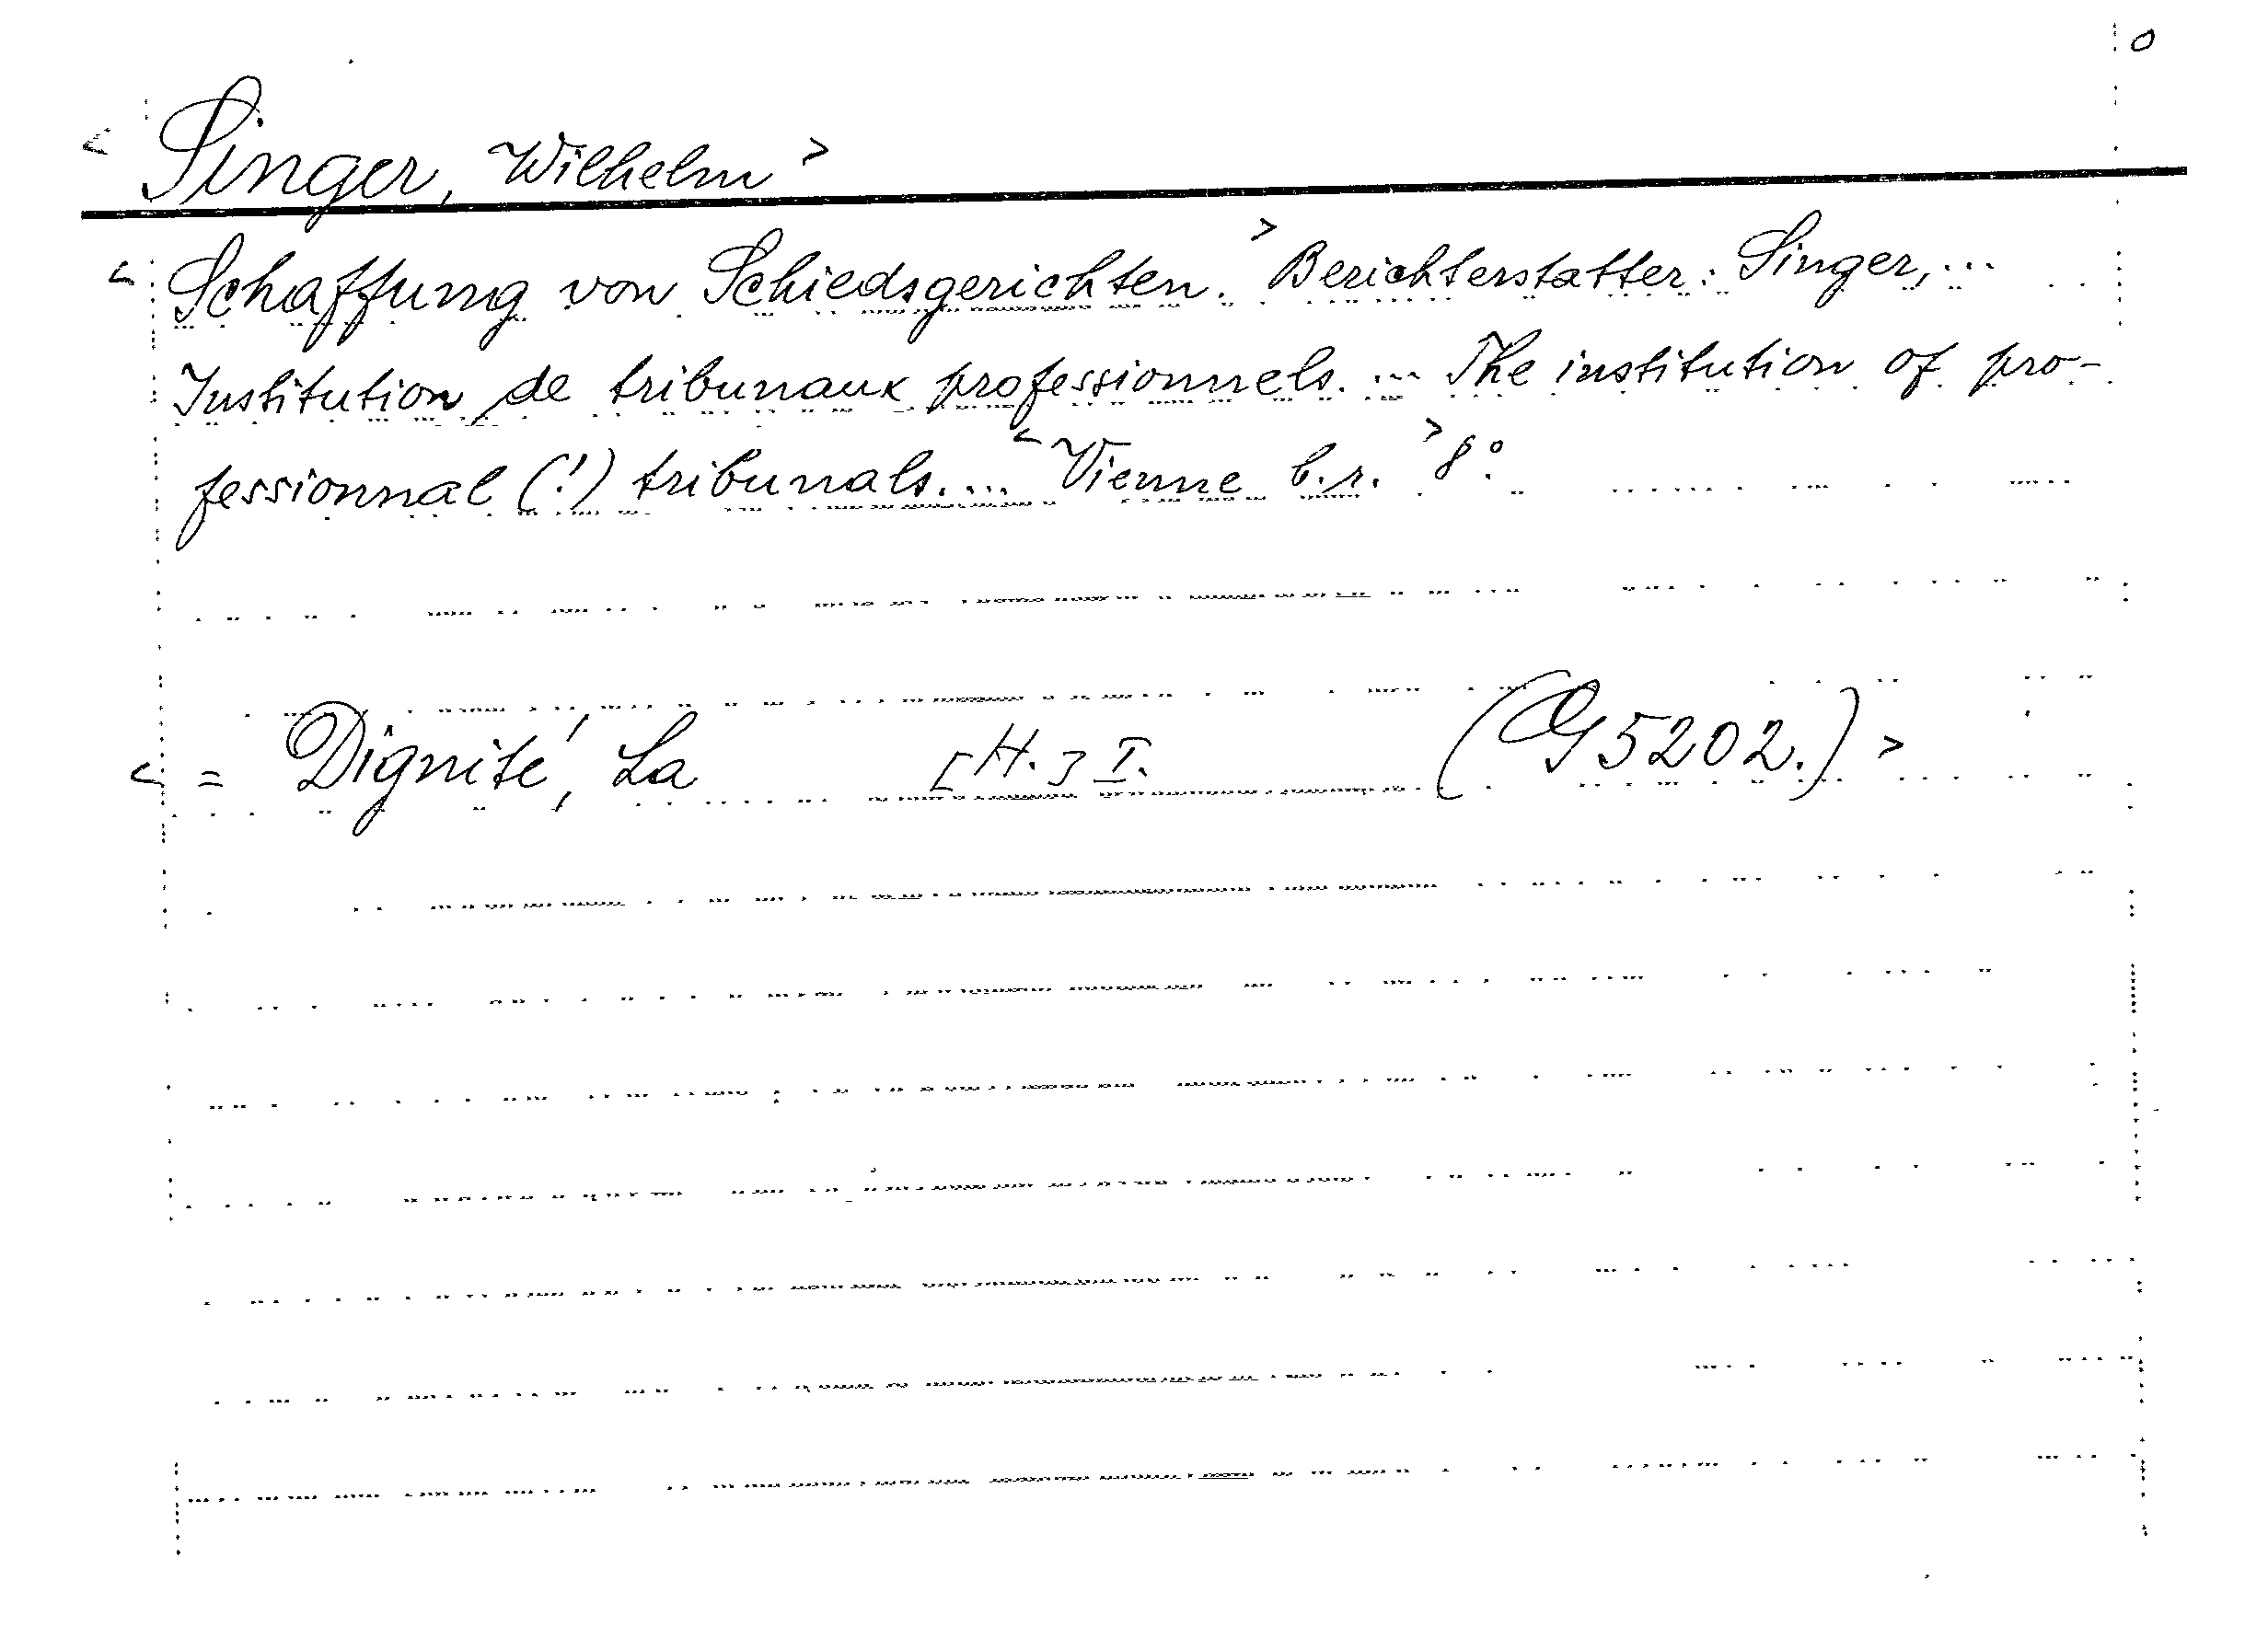 0
< Singer, Wilhelm >
< Schaffung von Schiedsgerichten. > Berichterstatter: Singer, ...
Institution de tribunaux professionnels. ... The institution of pro-
fessionnal (!) tribunals. ... < Vienne b.r. > 8°.
< = Dignité, La [H.] I. (G 5202.) >